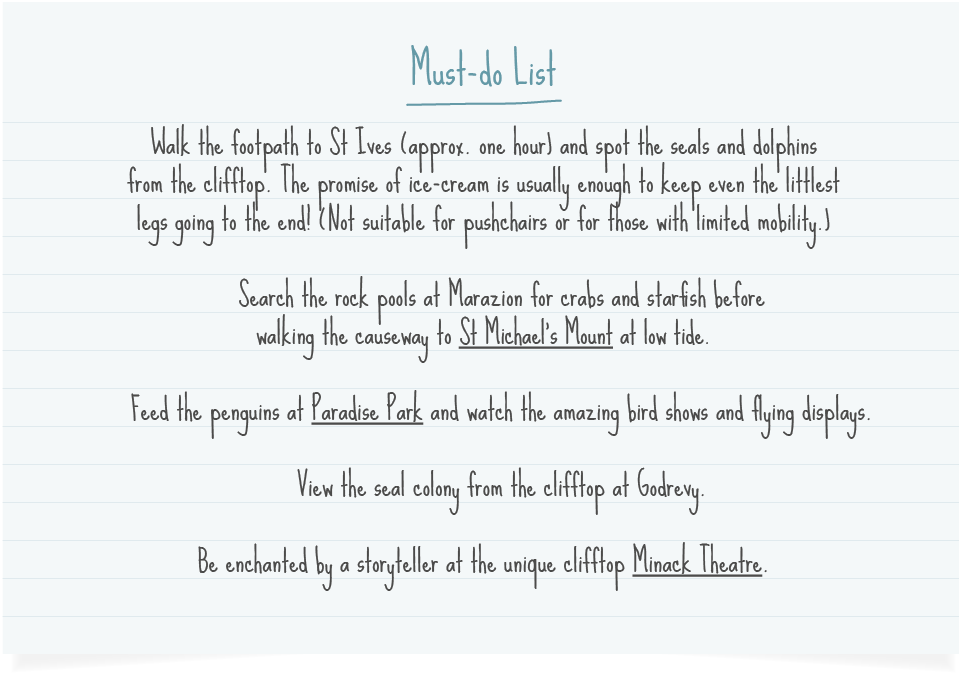 Must-do List
Walk the footpath to St Ives (approx. one hour) and spot the seals and dolphins
from the clifftop. The promise of ice-cream is usually enough to keep even the littlest
legs going to the end! (Not suitable for pushchairs or for those with limited mobility.)
Search the rock pools at Marazion for crabs and starfish before
walking the causeway to St Michael's Mount at low tide.
Feed the penguins at Paradise Park and watch the amazing bird shows and flying displays.
View the seal colony from the clifftop at Godrevy.
Be enchanted by a storyteller at the unique clifftop Minack Theatre.